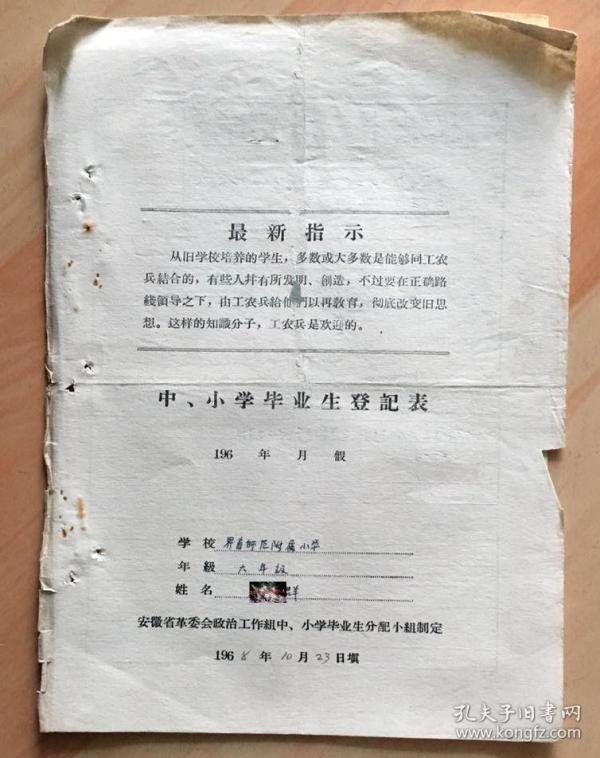 最新指示
从旧学校培养的学生，多数或大多数是能够同工农
兵結合的，有些人并有所发明、創造，不过要在正确路
綫領导之下，由工农兵給他們以再教育，彻底改变旧思
想。这样的知識分子，工农兵是欢迎的。
中、小学毕业生登記表
196 年 月 假
学校 界首师范附属小学
年級 六年级
姓名 群
安徽省革委会政治工作組中、小学毕业生分配小組制定
1968年10月23日填
孔夫子旧书网
www.kongfz.com